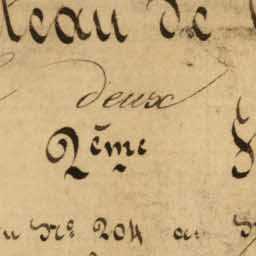 leau de
deux
2ème
Nº 204 au